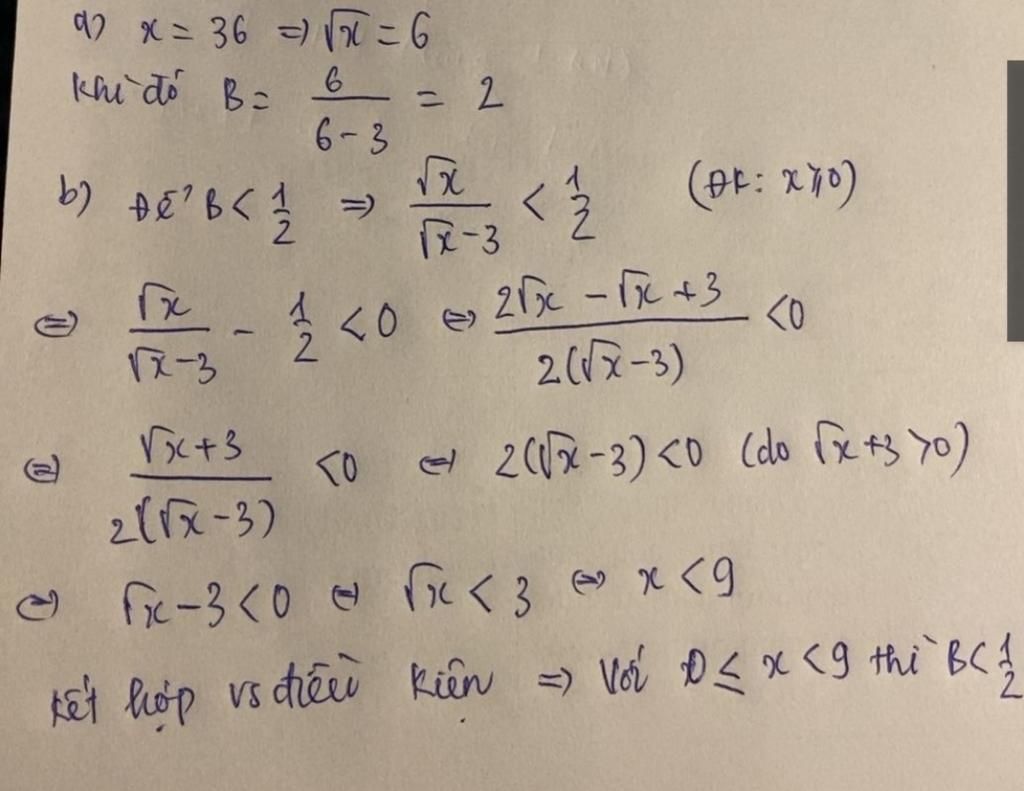 a) x = 36 ⇒ √x = 6
Khi đó B = 6/(6-3) = 2
b) Để B < 1/2 ⇒ √x/(√x-3) < 1/2 (ĐK: x ≥ 0)
⇔ √x/(√x-3) - 1/2 < 0 ⇔ (2√x - √x + 3)/(2(√x-3)) < 0
⇔ (√x+3)/(2(√x-3)) < 0 ⇔ 2(√x-3) < 0 (do √x+3 > 0)
⇔ √x-3 < 0 ⇔ √x < 3 ⇔ x < 9
Kết hợp vs điều kiện ⇒ Với 0 ≤ x < 9 thì B < 1/2